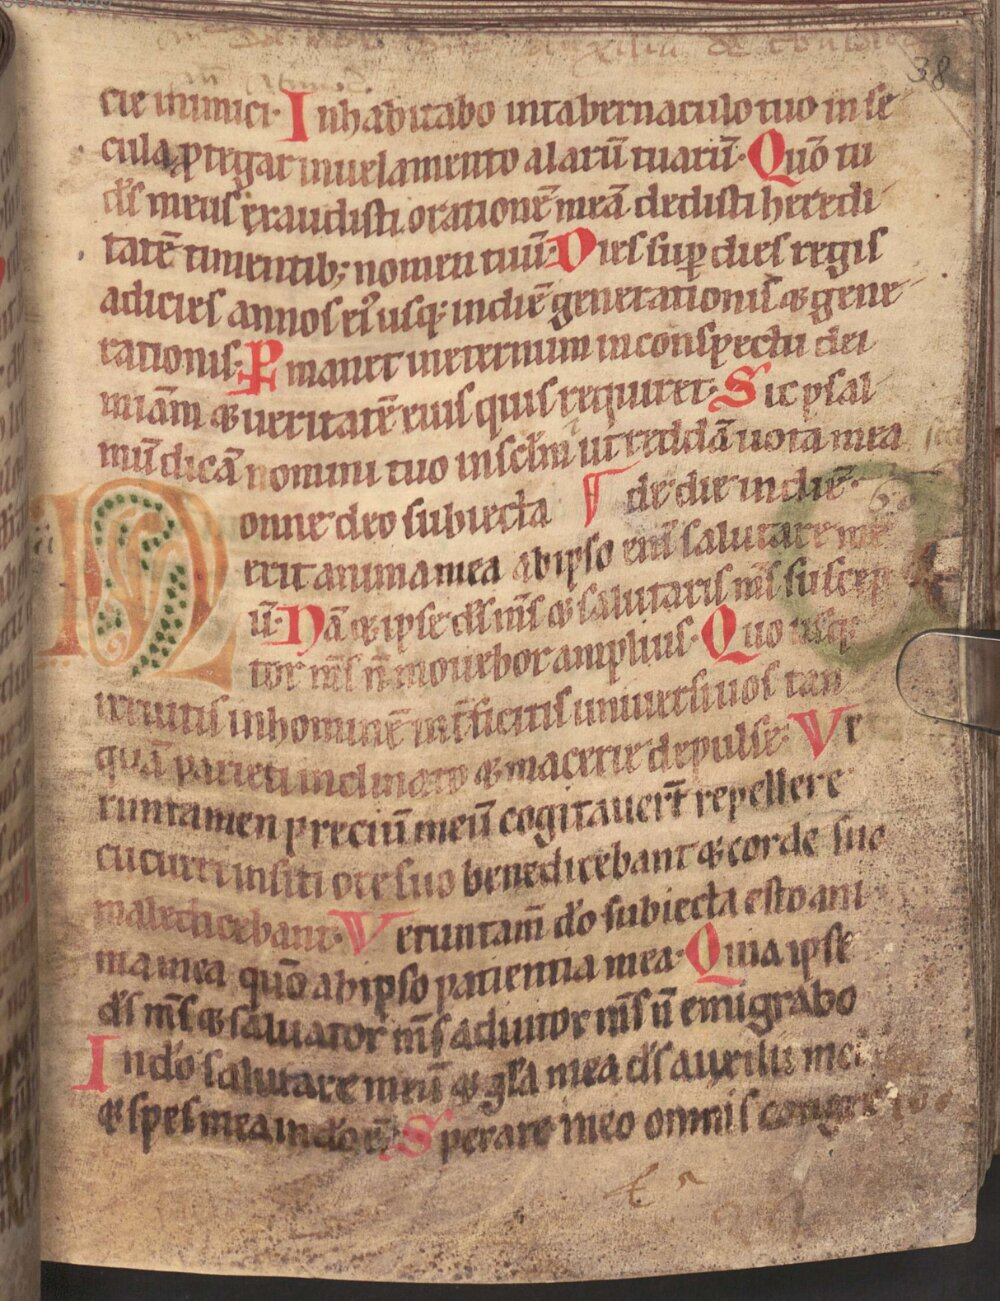 38
cie inimici. Inhabitabo intabernaculo tuo in se
cula ꝓtegar inuelamento alarū tuarū. Quō tu
dſ meus exaudisti orationē meā dedisti heredi
tatē timentib; nomen tuū. Dies sup̄ dies regis
adicies annos eiꝰ usq; indiē generationis & gene
rationis. P̱manet ineternum inconspectu dei
miām & ueritatē eius quis requiret. Sic psal
mū dicā nomini tuo insc̄lm ut reddā uota mea
onne deo subiecta de die indiē.
N erit anima mea abipso enī salutare me
ū. Nā & ipse ds̄ ms̄ & salutaris ms̄ suscep
tor ms̄ n̄ mouebor amplius. Quo usq;
irruitis inhominē int̄ficitis uniuersi uos tan
quā parieti inclinato & macerie depulse. Ve
runtamen preciū meū cogitauer̄t repellere
cucurri insiti ore suo benedicebant & corde suo
maledicebant. Veruntam̄ do subiecta esto ani
ma mea quō abipso patientia mea. Quia ipse
ds̄ ms̄ & saluator ms̄ adiutor ms̄ n̄ emigrabo
Indo salutare meū & gl̄a mea ds̄ auxilii mei
& spes mea indo ē. Sperate ineo omnis congre